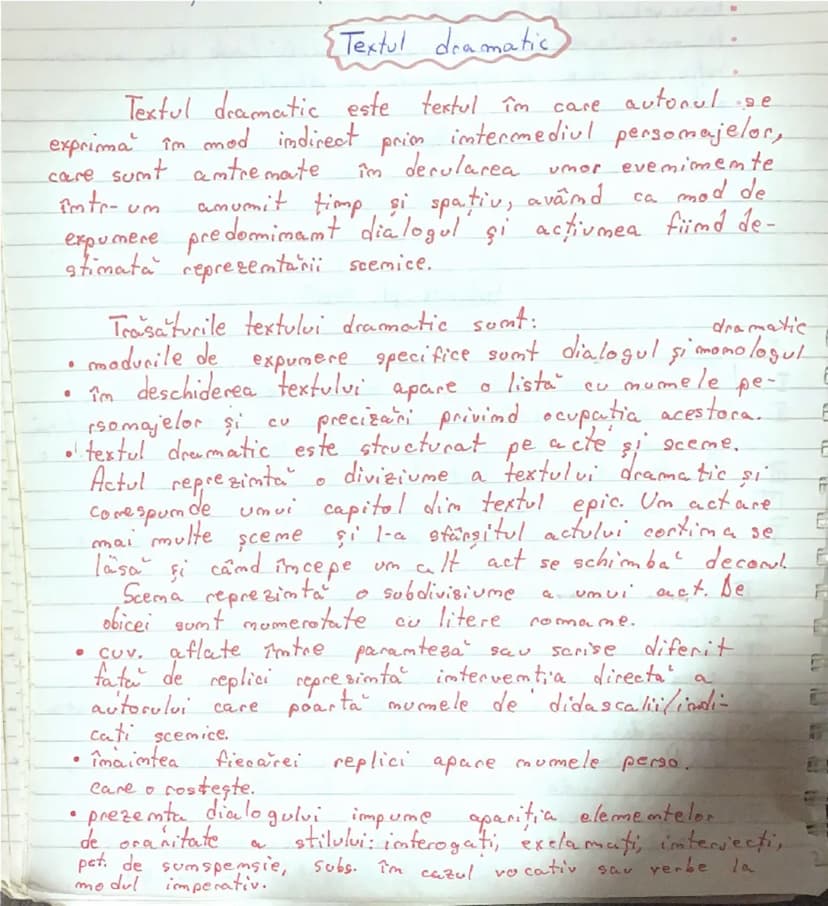 Textul dramatic
Textul dramatic este textul în care autorul se
exprimă în mod indirect prin intermediul personajelor,
care sunt antrenate în derularea unor evenimente
într-un anumit timp și spațiu, având ca mod de
expunere predominant dialogul și acțiunea fiind de-
stinată reprezentării scenice.
Trăsăturile textului dramatic sunt:
dramatic
• modurile de expunere specifice sunt dialogul și monologul
• în deschiderea textului apare o listă cu numele pe-
rsonajelor și cu precizări privind ocupația acestora.
• textul dramatic este structurat pe acte și scene.
Actul reprezintă o diviziune a textului dramatic și
corespunde unui capitol din textul epic. Un act are
mai multe scene și l-a sfârșitul actului cortina se
lăsă și când începe un alt act se schimbă decorul.
Scena reprezintă o subdivisiune a unui act. De
obicei sunt numerotate cu litere romane.
• cuv. aflate între paranteză sau scrise diferit
fată de replici represintă interventia directă a
autorului care poartă numele de didascalii/indi-
cati scenice.
• înaintea fiecărei replici apare numele perso.
care o rostește.
• prezenta dialogului impune apariția elementelor
de oralitate a stilului: interogați, exclamați, interjecți,
pct. de sunspensie, subs. în cazul vocativ sau verbe la
modul imperativ.